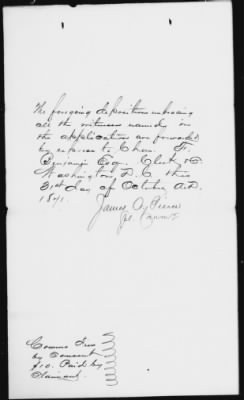 The foregoing depositions embracing
all the witnesses named in
the application are forwarded
by express to Chas. F.
Benjamin Esq. Clerk &c
Washington D. C. this
31st day of October A.D.
18
James A. Pierce
Comms Fees
by Consent
$10. Paid by
Claimant.